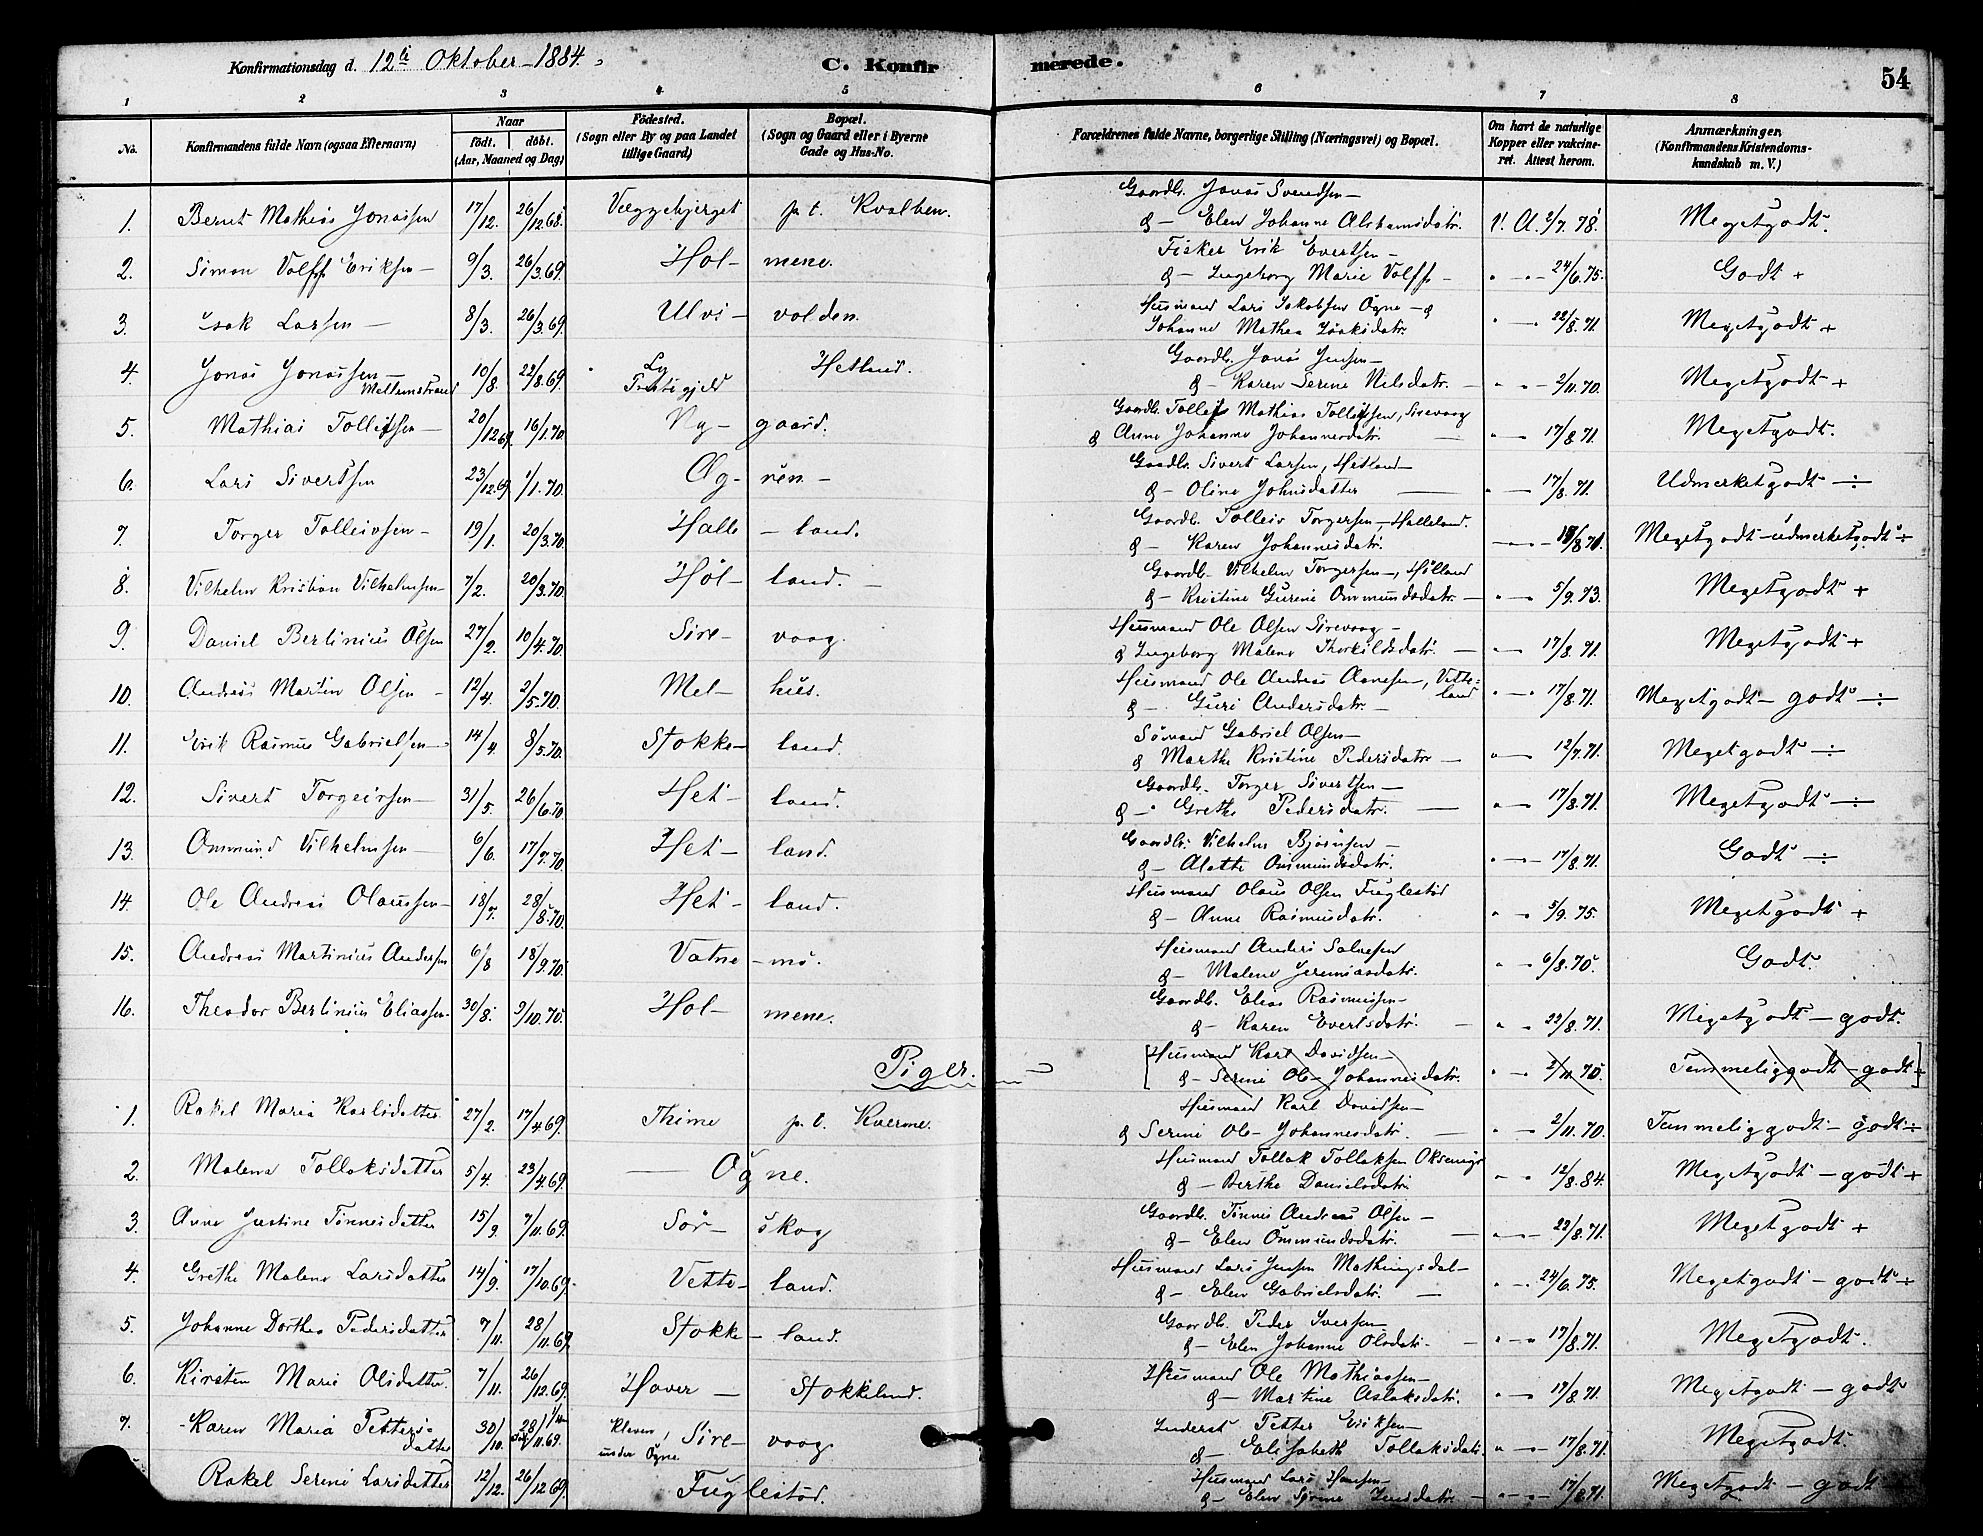 Konfirmationsdag d. 12te Oktober 1884.
C. Konfirmerede.
54
1 2 3 4 5 6 7 8
No.
Konfirmandens fulde Navn (ogsaa Efternavn)
Naar
født. døbt.
(Aar, Maaned og Dag)
Födested.
(Sogn eller By og paa Landet
tillige Gaard.)
Bopæl.
(Sogn og Gaard eller i Byerne
Gade og Hus-No.
Forældrenes fulde Navne, borgerlige Stilling (Næringsvei) og Bopæl.
Om havt de naturlige
Kopper eller vakcine-
ret. Attest herom.
Anmærkninger.
(Konfirmandens Kristendoms-
kundskab m. V.)
Gaardb. Jonas Svendsen –
1. Bernt Mathias Jonassen 17/12. 26/12.68. Væggebjerget p. t. Kvalben. & – Elen Johanne Abrahamsdatr. V. A. 2/7. 78. Megetgodt.
Fisker Erik Evertsen –
2. Simon Volff Eriksen – 9/3. 26/3.69. Hol – mene. & – Ingeborg Marie Volff – " – 24/6.75. Godt +
Husmand Lars Jakobsen Ögne – &
3. Isak Larsen – 8/3. 26/3.69. Ulvi – volden. Johanne Mathea Isaksdatr. " – 22/8.71. Megetgodt +
Gaardb. Jonas Jensen –
4. Jonas Jonassen – Mellemstrand 10/8. 22/8.69. Hetland. & – Karen Serine Nilsdatr. – " – 2/11.70. Megetgodt +
Gaardb. Tolleif Mathias Tolleifsen, Sirevaag
5. Mathias Tolleifsen – 20/12.69. 16/1.70. Ny – gaard. & Anne Johanne Johannesdatr. – " – 17/8.71. Megetgodt.
Gaardb. Sivert Larsen, Hetland –
6. Lars Sivertsen 23/12.69. 1/1.70. & – Oline Johnsdatter – " – 17/8.71. Udmerketgodt ÷
Gaardb. Tolleiv Torgersen – Halleland.
7. Torger Tolleivsen – 19/1. 20/3.70. Halle – land. & – Karen Johannesdatr. – " – 18/8.71. Megetgodt – udmerketgodt ÷
Gaardb. Vilhelm Torgersen –, Hölland
8. Vilhelm Kristian Vilhelmsen – 7/2. 20/3.70. Höl – land. – & – Kristine Gurine Ommundsdatr. – " – 5/9.73. Megetgodt +
Husmand Ole Olsen Sirevaag –
9. Daniel Bertinius Olsen 27/2. 10/4.70. Sire – vaag. & Ingeborg Malene Thorkildsdatr. – " – 17/8.71. Megetgodt +
Husmand Ole Andreas Aanesen –, Vetteland
10. Andreas Martin Olsen – 12/4. 2/5.70. Mel – hus. & – Guri Andersdatr. – " – 17/8.71. Megetgodt – godt ÷
Sömand Gabriel Olsen –
11. Erik Rasmus Gabrielsen – 14/4. 8/5.70. Stokke – land. & Marthe Kristine Pedersdatr – " – 12/7.71. Megetgodt ÷
Gaardb. Torger Sivertsen –
12. Sivert Torgersen – 31/5. 26/6.70. Het – land. & – Grethe Pedersdatr. – " – 17/8.71. Megetgodt ÷
Gaardb. Vilhelm Björnsen –
13. Ommund Vilhelmsen – 6/6. 17/7.70. Het – land. & – Alette Ommundsdatr. " – 17/8.71. Godt ÷
Husmand Olaus Olsen Fuglestad
14. Ole Andreas Olaussen – 18/7. 28/8.70. Het – land. & – Anne Rasmusdatr. " – 5/9.75. Megetgodt +
Husmand Anders Salvesen
15. Andreas Martinius Andersen 6/8 18/9.70. Vatne – mo. & – Malene Jeremiasdatr. " – 6/8.70. Godt.
Gaardb. Elias Rasmussen –
16. Theodor Bertinius Eliassen. 30/8. 2/10.70. Hol – mene. & – Karen Evertsdatr. – " – 22/8.71. Megetgodt – godt.
Piger.
[Husmand Karl Davidsen –
& – Serine Ole-Johannesdatr. " – 2/11.70. Temmeliggodt – godt]
Husmand Karl Davidsen –
1. Rakel Maria Karlsdatter 27/2. 17/4.69. Thime p. t. Kverme. & Serine Ole-Johannesdatr. – " – 2/11.70. Temmeliggodt – godt ÷
Husmand Tollak Tollaksen
2. Malene Tollaksdatter 5/4. 23/4.69. – Ögne. & – Berthe Danielsdatr. " – 12/8.84. Megetgodt – godt +
Gaardb. Tönnes Andreas Olsen –
3. Anne Justine Tönnesdatter 15/9. 7/11.69. Sör – skog & – Elen Ommundsdatr. – " – 22/8.71. Megetgodt +
Husmand Lars Jensen Mathingsdal –
4. Grethe Malene Larsdatter 14/9. 17/10.69. Vette – land. & – Elen Gabrielsdatr. – " – 24/6.75. Megetgodt – godt ÷
Gaardb. Peder Iversen –
5. Johanne Dorthea Pedersdatter 7/11. 28/11.69. Stokke – land. & – Elen Johanne Olsdatr. – " – 17/8.71. Megetgodt.
Husmand Ole Mathiassen –
6. Kirsten Marie Olsdatter. 7/11. 26/12.69. Haver – Stokkeland. & – Martine Aslaksdatr. " – 17/8.71. Megetgodt – godt
Inderst Petter Eriksen –
7. Karen Maria Pettersdatter 30/10. 28/11.69. Kleven, under Ögne Sire – vaag. & – Elisabeth Tollaksdatr. " – 17/8.71. Megetgodt.
Husmand Lars Hansen –
Rakel Serine Larsdatter 12/12. 26/12.69. Fuglestad. & – Elen Serine Jensdatr – " – 17/8.71. Megetgodt – godt